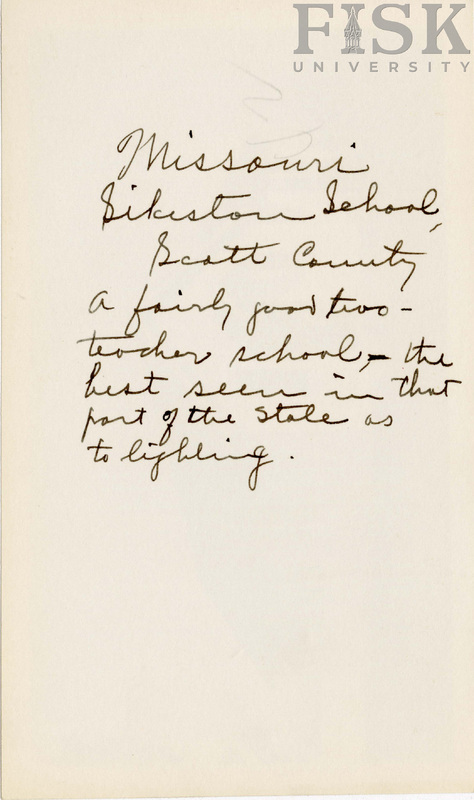 FISK
UNIVERSITY
Missouri
Sikeston School,
Scott County
A fairly good two-
teacher school, - the
best seen in that
part of the State as
to lighting.